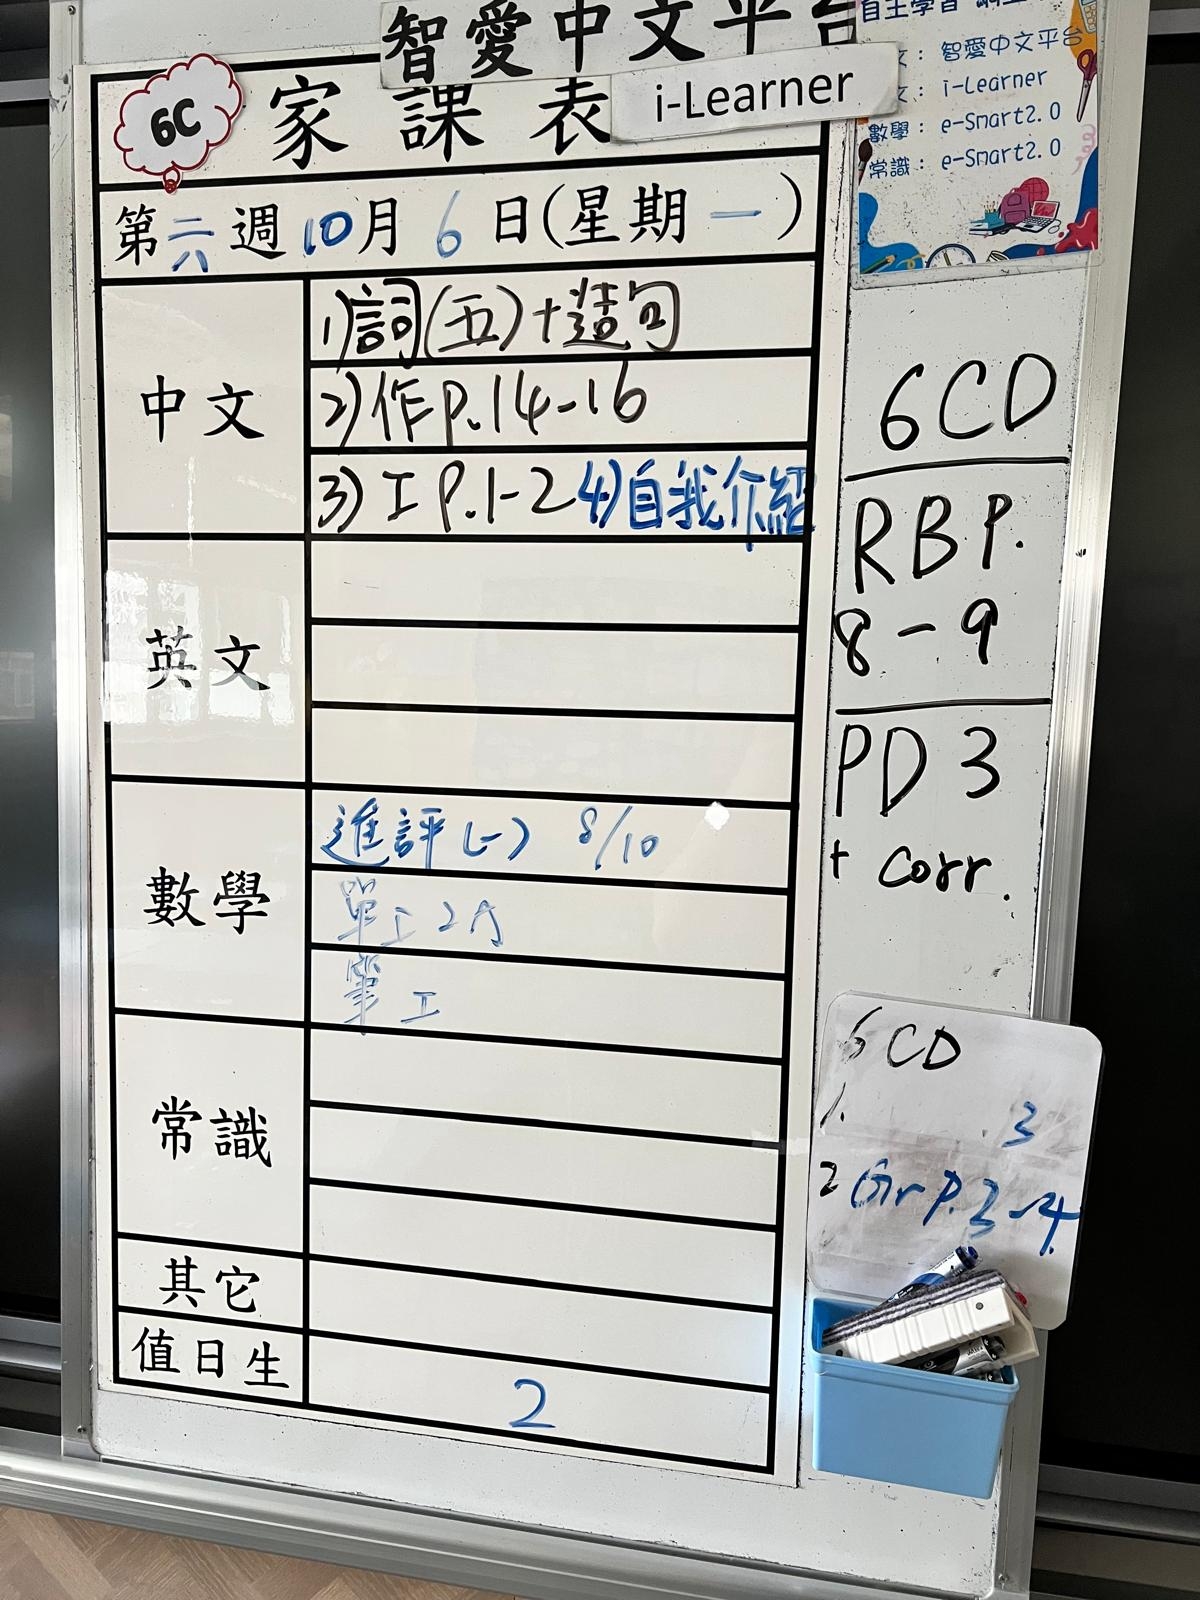 智愛中文平台
i-Learner
6C
家課表
第六週10月6日(星期一)
中文
1)詞(五)+造句
2)作P.14-16
3)工P.1-2 4)自我介紹
英文
數學
進評(一) 8/10
單工2A
筆工
常識
其它
值日生
2
自主學習
文：智愛中文平台
文：i-Learner
數學：e-Smart2.0
常識：e-Smart2.0
6CD
RB P.
8-9
PD 3
+ corr.
6CD
1. 3
2 Gr P.3-4